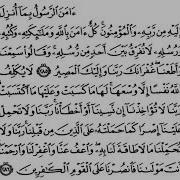 ءَامَنَ ٱلرَّسُولُ بِمَآ أُنزِلَ
إِلَيْهِ مِن رَّبِّهِۦ وَٱلْمُؤْمِنُونَ كُلٌّ ءَامَنَ بِٱللَّهِ وَمَلَٰٓئِكَتِهِۦ وَكُتُبِهِۦ
وَرُسُلِهِۦ لَا نُفَرِّقُ بَيْنَ أَحَدٍ مِّن رُّسُلِهِۦ وَقَالُوا۟ سَمِعْنَا
وَأَطَعْنَا غُفْرَانَكَ رَبَّنَا وَإِلَيْكَ ٱلْمَصِيرُ ٢٨٥ لَا يُكَلِّفُ
ٱللَّهُ نَفْسًا إِلَّا وُسْعَهَا لَهَا مَا كَسَبَتْ وَعَلَيْهَا مَا ٱكْتَسَبَتْ
رَبَّنَا لَا تُؤَاخِذْنَآ إِن نَّسِينَآ أَوْ أَخْطَأْنَا رَبَّنَا وَلَا تَحْمِلْ
عَلَيْنَآ إِصْرًا كَمَا حَمَلْتَهُۥ عَلَى ٱلَّذِينَ مِن قَبْلِنَا رَبَّنَا وَلَا
تُحَمِّلْنَا مَا لَا طَاقَةَ لَنَا بِهِۦ وَٱعْفُ عَنَّا وَٱغْفِرْ لَنَا وَٱرْحَمْنَآ
أَنتَ مَوْلَىٰنَا فَٱنصُرْنَا عَلَى ٱلْقَوْمِ ٱلْكَٰفِرِينَ ٢٨٦